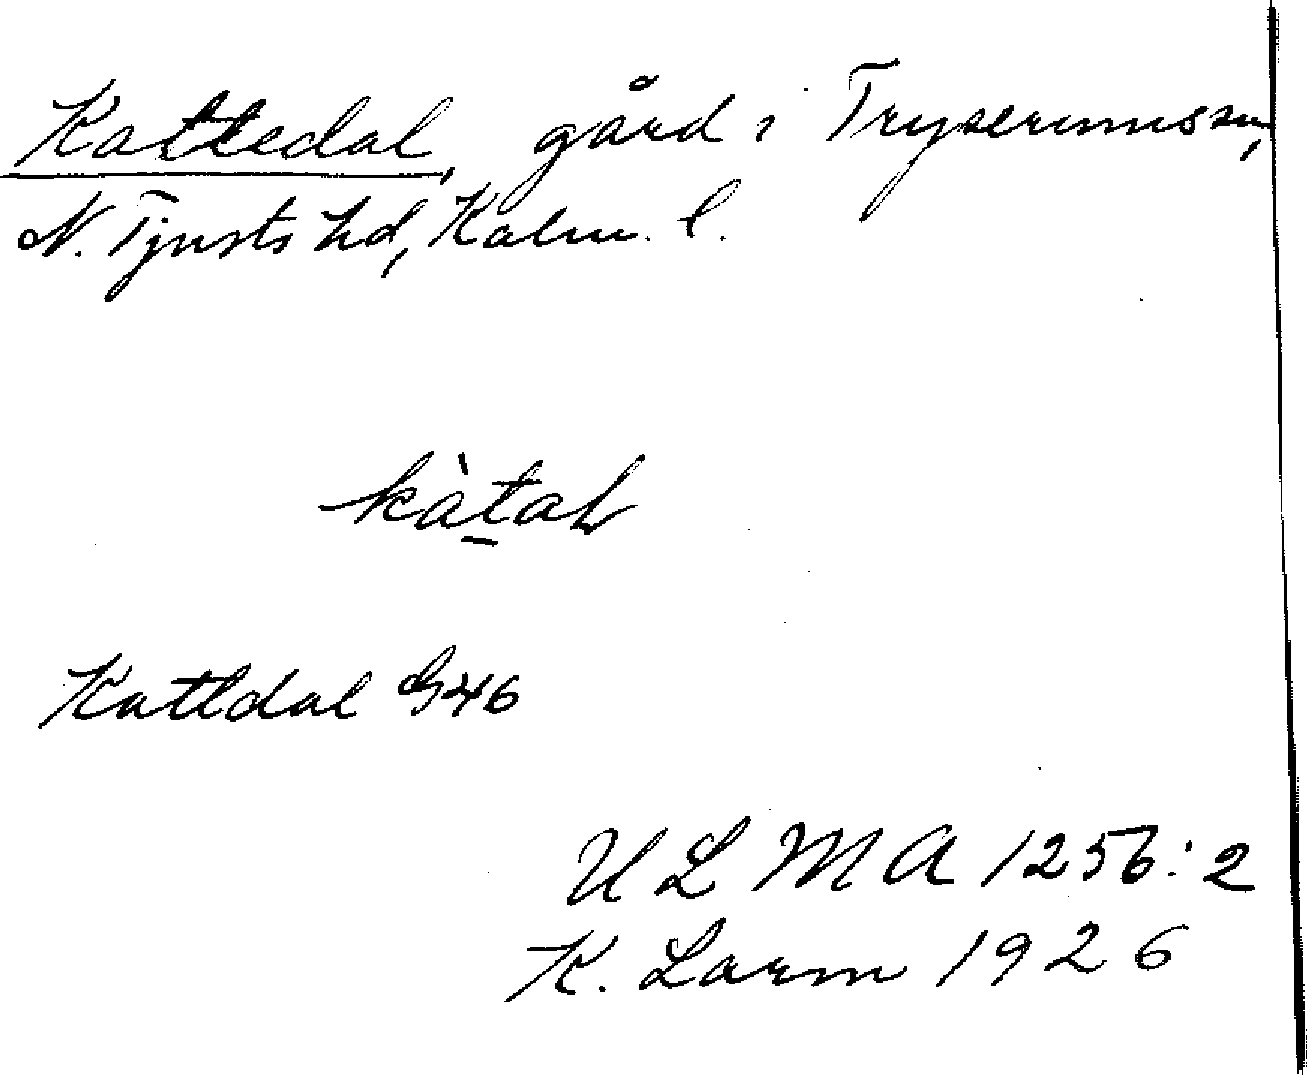 Kattedal, gård i Tryserums sn,
N. Tjusts hd, Kalm. l.
kàtaL
Kattdal G46
ULMA 1256:2
K. Larm 1926